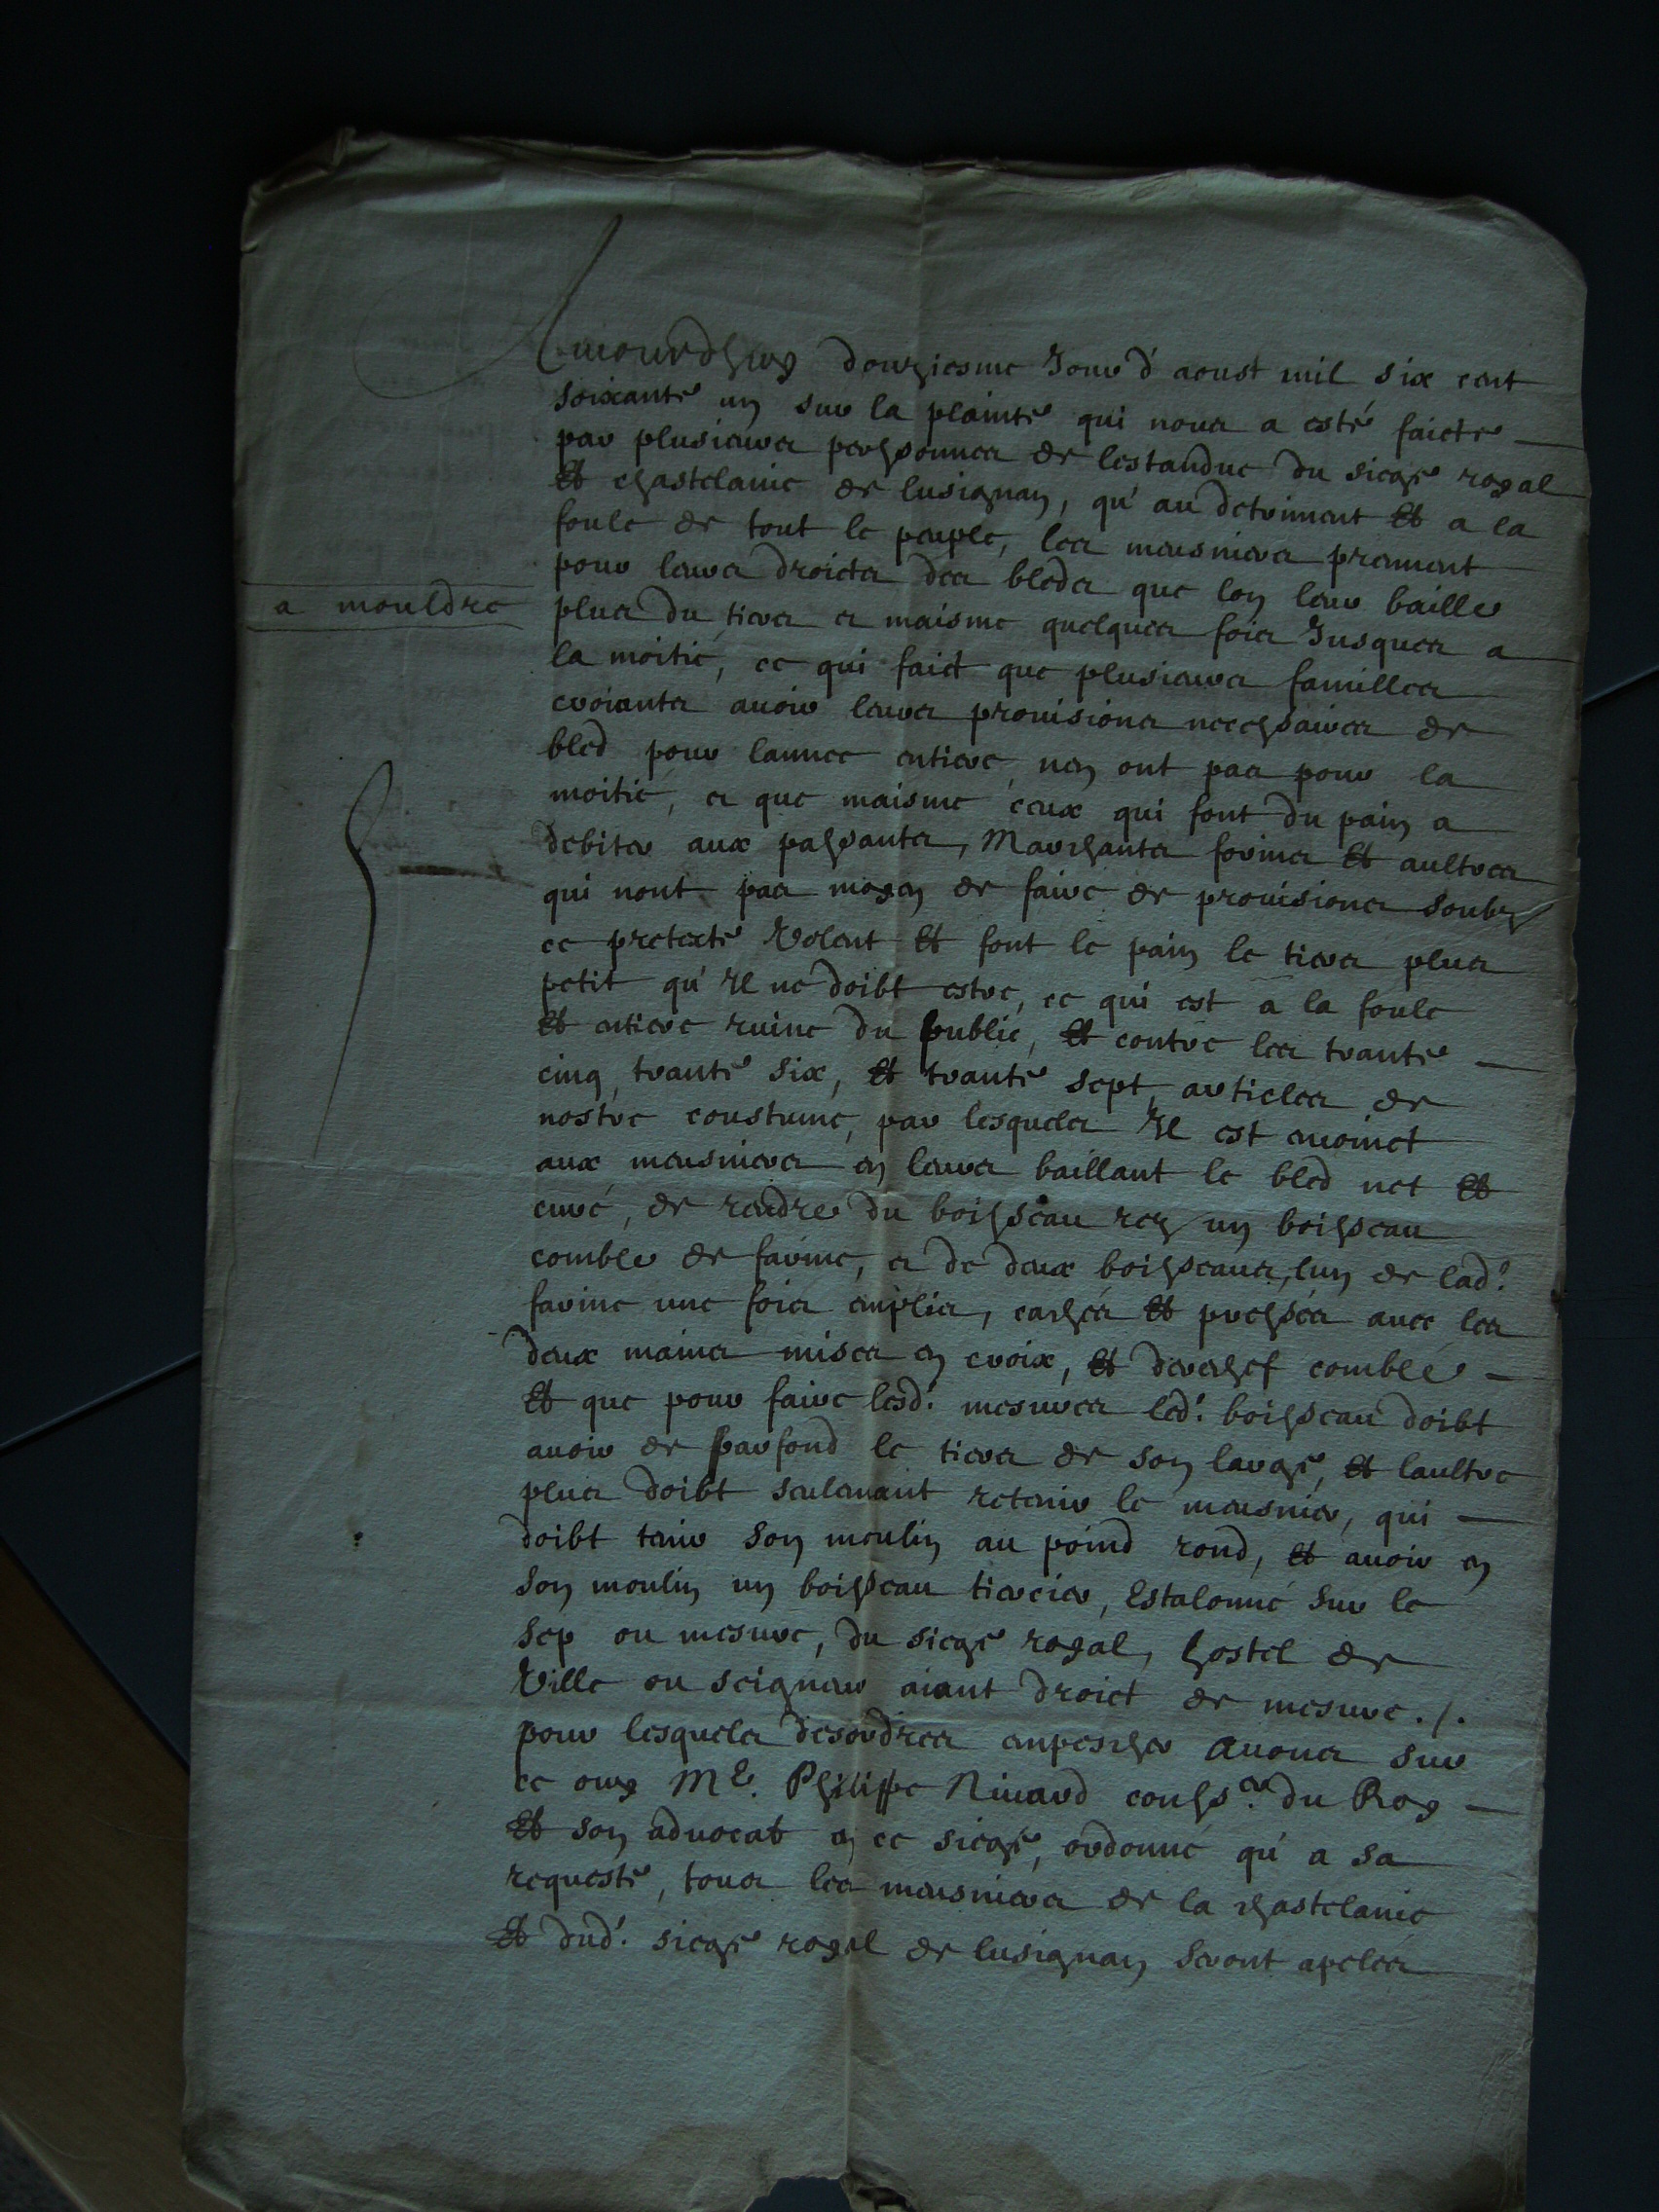 Aujourdhuy douziesme Jour d'aoust mil six cent
soixante un sur la plainte qui nous a esté faicte
par plusieurs personnes de lestandue du siege royal
Et chastelanie de lusignan, qu'au detriment Et a la
foule de tout le peuple, les meusniers prennent
pour leurs droicts des bleds que lon leur baille
a mouldre
plus du tiers et maisme quelques fois Jusques a
la moitié, ce qui faict que plusieurs familles
croiants avoir leurs provisions necessaires de
bled pour lannee entiere, nen ont pas pour la
moitié, et que maisme ceux qui font du pain a
debiter aux passants, Marchants forins Et aultres
qui nont pas moyen de faire de provisions soubz
ce pretexte Volent Et font le pain le tiers plus
petit qu'Il ne doibt estre, ce qui est a la foule
Et entiere ruine du public, Et contre les trante
cinq, trante six, Et trante sept, articles de
nostre coustume, par lesquels Il est enioinct
aux meusniers en leurs baillant le bled net Et
curé, de rendre du boisseau rez un boisseau
comble de farine, et de deux boisseaus, lun de lad.
farine une fois emplis, cachés Et pressés avec les
deux mains mises en croix, Et derechef comblé
Et que pour faire lesd. mesures led. boisseau doibt
avoir de parfond le tiers de son large, Et laultre
plus doibt seulemant retenir le meusnier, qui
doibt tenir son moulin au poind rond, Et avoir en
son moulin un boisseau tiercier, Estalonné sur le
sep ou mesure, du siege royal, hostel de
Ville ou seigneur aiant droict de mesure ./.
pour lesquels desordres empescher Avons sur
ce ouy Me. Philippe Rivard conser. du Roy
Et son advocat en ce siege, ordonné qu'a sa
requeste, tous les meusniers de la chastelanie
Et dud. siege royal de lusignan seront apelés